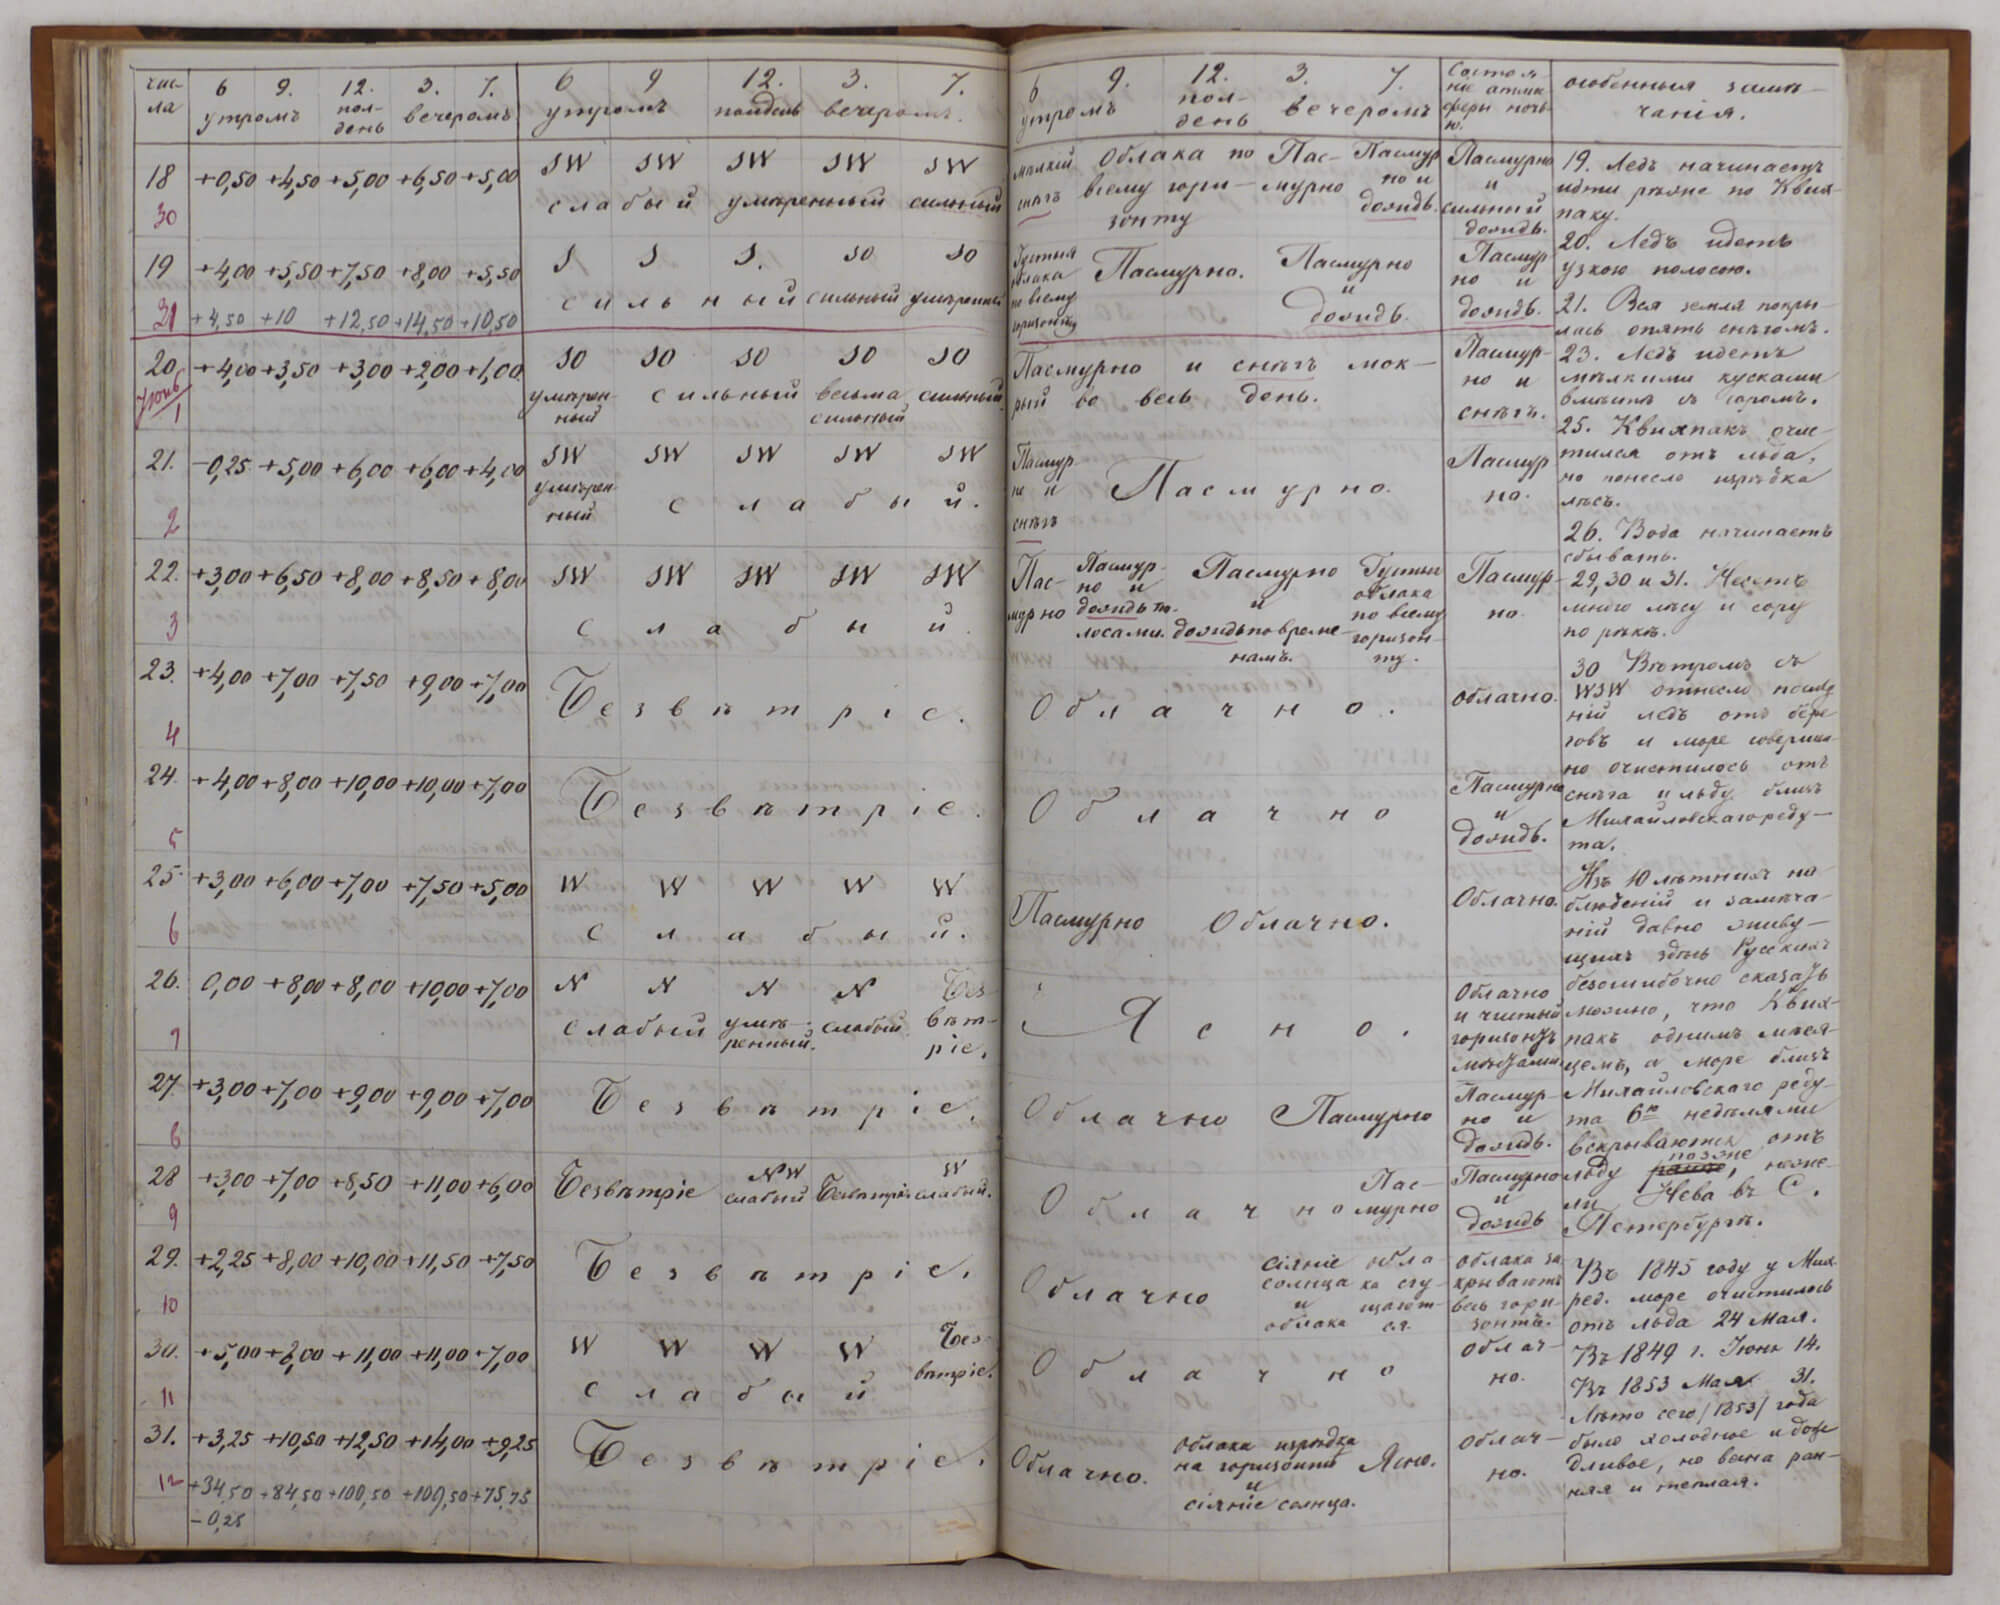 чис-
ла
6 9. 12. 3. 7.
утромъ пол-
день вечеромъ
6 9 12. 3. 7.
утромъ полдень вечеромъ.
18 +0,50 +4,50 +5,00 +6,50 +5,00 SW SW SW SW SW
30 слабый умѣренный сильный
19 +4,00 +5,50 +7,50 +8,00 +5,50 S S S. SO SO
сильный сильный умѣренный
31 +4,50 +10 +12,50 +14,50 +10,50
20 +4,00 +3,50 +3,00 +2,00 +1,00 SO SO SO SO SO
Іюнь
1
умѣрен- сильный весьма сильный.
ный сильный
21. -0,25 +5,00 +6,00 +6,00 +4,00 SW SW SW SW SW
2 умѣрен- слабый.
ный
22. +3,00 +6,50 +8,00 +8,50 +8,00 SW SW SW SW SW
3 слабый
23. +4,00 +7,00 +7,50 +9,00 +7,00 Безвѣтріе.
4
24. +4,00 +8,00 +10,00 +10,00 +7,00 Безвѣтріе.
5
25. +3,00 +6,00 +7,00 +7,50 +5,00 W W W W W
6 слабый.
26. 0,00 +8,00 +8,00 +10,00 +7,00 N N N N Без-
7 слабый умѣ- слабый вѣт-
ренный. ріе.
27. +3,00 +7,00 +9,00 +9,00 +7,00 Безвѣтріе.
28 +3,00 +7,00 +8,50 +11,00 +6,00 Безвѣтріе NW слабый Безвѣтріе W слабый.
9
29. +2,25 +8,00 +10,00 +11,50 +7,50 Безвѣтріе.
10
30. +5,00 +8,00 +11,00 +11,00 +7,00 W W W W Без-
11 слабый вѣтріе.
31. +3,25 +10,50 +12,50 +14,00 +9,25 Безвѣтріе.
12 +34,50 +84,50 +100,50 +109,50 +75,75
-0,25
6 9. 12. 3. 7.
утромъ пол-
день вечеромъ
Состоя-
ніе атмо-
сферы ночь-
ю.
особенныя замѣ-
чанія.
мѣлкій Облака по Пас- Пасмур
снѣгъ всему гори- мурно но и
зонту дождь.
Пасмурно
и
сильный
дождь.
Густыя
облака
по всему
горизонту
Пасмурно. Пасмурно
и
дождь.
Пасмур
но и
дождь.
Пасмурно и снѣгъ мок-
рый во весь день.
Пасмур-
но и
снѣгъ.
Пасмур-
но и
снѣгъ
Пасмурно.
Пасмур
но.
Пас-
мурно
Пасмур-
но и
дождь по-
лосами.
Пасмурно
и
дождь по време-
намъ.
Густыя
облака
по всему
горизон-
ту.
Пасмур-
но.
Облачно.
облачно.
Облачно
Пасмурно
и
дождь.
Пасмурно Облачно.
Облачно.
Ясно.
Облачно
и чистый
горизонтъ
мѣстами.
Облачно Пасмурно
Пасмур-
но и
дождь.
Облачно Пас-
мурно
Пасмурно
и
дождь
Облачно
сіяніе
солнца
и
облака
обла
ка сгу-
щают-
ся.
облака за
крываютъ
весь гори-
зонтъ.
Облачно
облач-
но.
Облачно.
облака изрѣдка
на горизонтѣ
и
сіяніе солнца.
Ясно.
облач-
но.
19. Ледъ начинаетъ
идти рѣже по Квих-
паку.
20. Ледъ идетъ
узкою полосою.
21. Вся земля покры-
лась опять снѣгомъ.
23. Ледъ идетъ
мѣлкими кусками
вмѣстѣ съ соромъ.
25. Квихпакъ очи-
стился отъ льда,
но понесло изрѣдка
лѣсъ.
26. Вода начинаетъ
сбывать.
29, 30 и 31. Несетъ
много лѣсу и сору
по рѣкѣ.
30 Вѣтромъ съ
WSW отнесло послѣд
ній ледъ отъ бере
говъ и море соверше-
но очистилось отъ
снѣга и льду близъ
Михайловскаго реду-
та.
Изъ 10 лѣтнихъ на
блюденій и замѣча-
ній давно живу-
щихъ здѣсь Русскихъ
безошибочно сказать
можно, что Квих-
пакъ однимъ мѣся-
цемъ, а море близъ
Михайловскаго реду-
та 6ю недѣлями
вскрываются отъ
льду позже, неже-
ли Нева въ С.
Петербургѣ.
Въ 1845 году у Мих
ред. море очистилось
отъ льда 24 Мая.
Въ 1849 г. Іюня 14.
Въ 1853 Мая 31.
Лѣто сего /1853/ года
было холодное и дож
дливое, но весна ран-
няя и теплая.